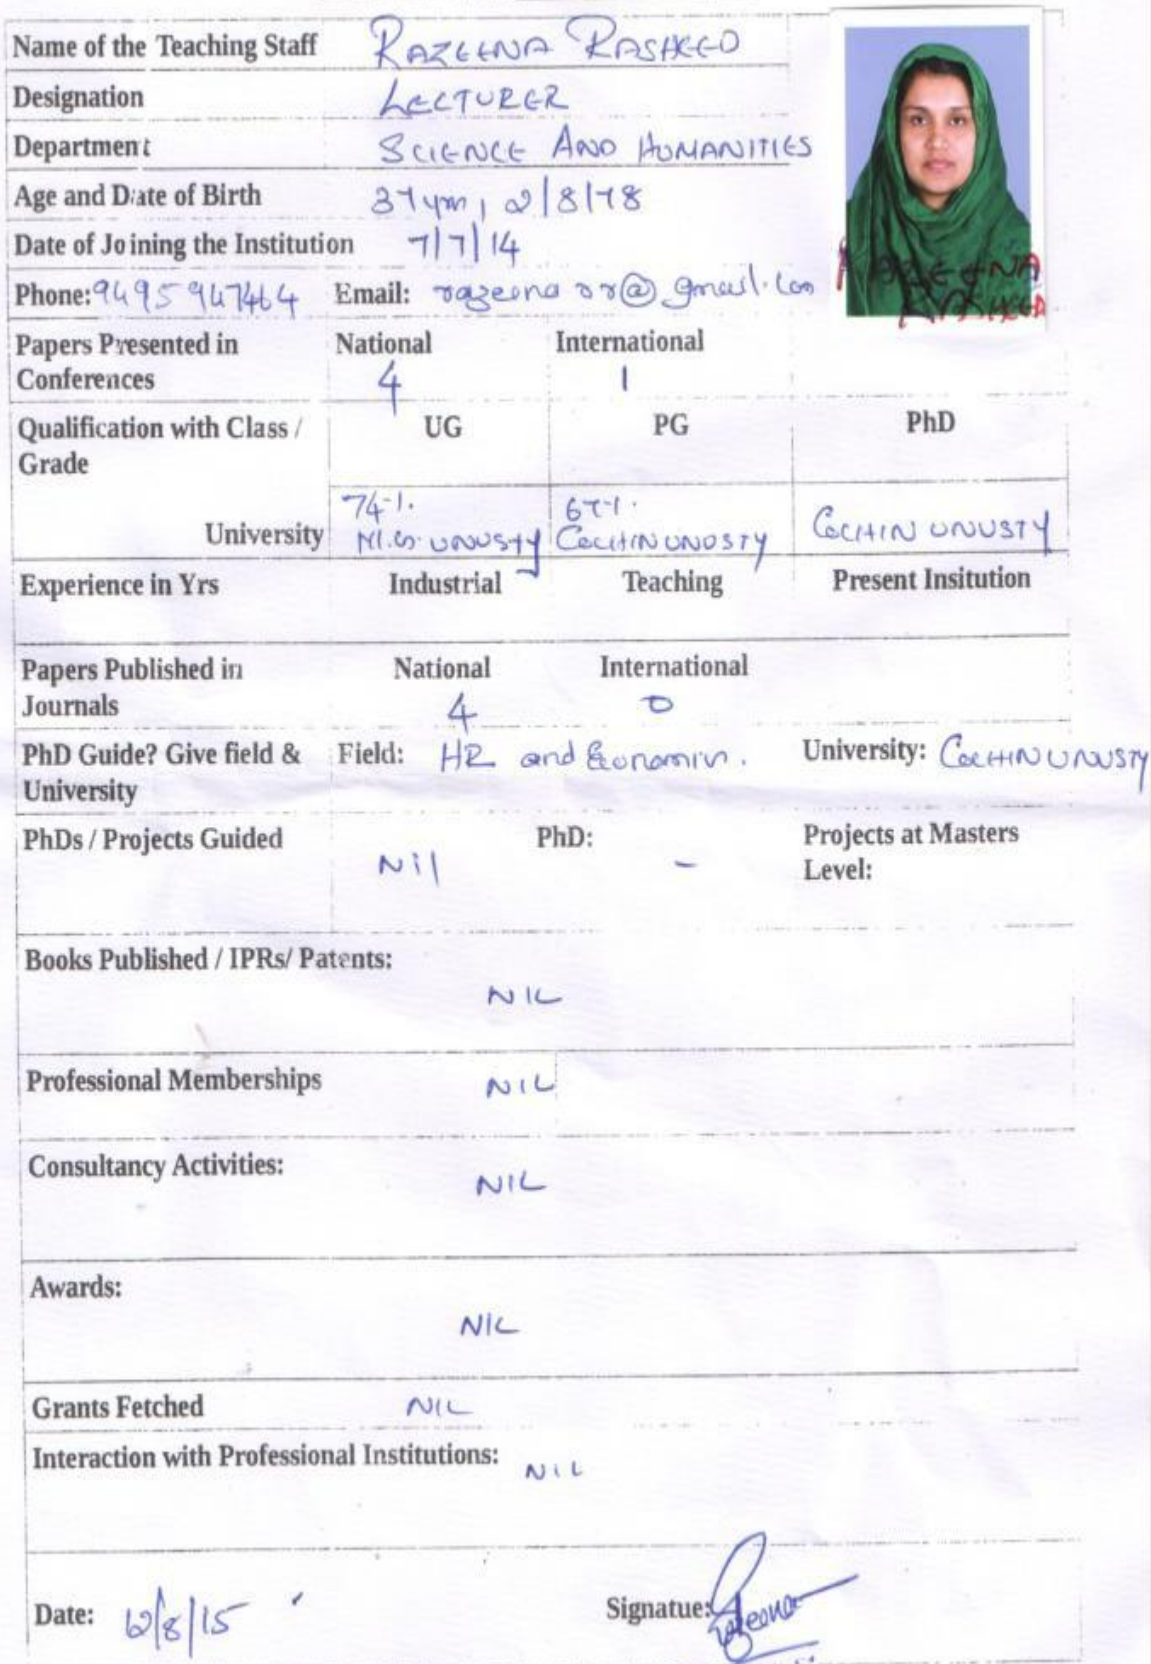 Name of the Teaching Staff RAZEENA RASHEED
Designation LECTURER
Department SCIENCE AND HUMANITIES
Age and Date of Birth 37 yrs, 2/8/78
Date of Joining the Institution 7/7/14
Phone: 9495947464 Email: @gmail.com
RAZEENA
RASHEED
Papers Presented in National International
Conferences 4 1
Qualification with Class / UG PG PhD
Grade
74%. 67%.
University M.G. UNVSTY COCHIN UNVSTY COCHIN UNVSTY
Experience in Yrs Industrial Teaching Present Insitution
Papers Published in National International
Journals 4 0
PhD Guide? Give field & Field: HR and Economics. University: COCHIN UNVSTY
University
PhDs / Projects Guided Nil PhD: - Projects at Masters
Level:
Books Published / IPRs/ Patents:
NIL
Professional Memberships NIL
Consultancy Activities:
NIL
Awards:
NIL
Grants Fetched NIL
Interaction with Professional Institutions: NIL
Date: 12/8/15 Signatue: Razeena